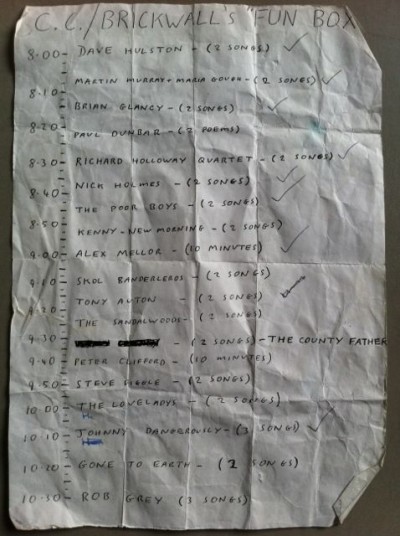 C.C./BRICKWALL'S "FUN BOX
8.00 - DAVE HULSTON - (2 SONGS)
MARTIN MURRAY + MARIA GOUGH - (2 SONGS)
8.10
BRIAN GLANCY - (2 SONGS)
8.20
PAUL DUNBAR - (2 POEMS)
8.30 RICHARD HOLLOWAY QUARTET - (2 SONGS)
NICK HOLMES - (2 SONGS)
8.40
THE POOR BOYS - (2 SONGS)
8.50
KENNY - NEW MORNING - (2 SONGS)
9.00 ALEX MELLOR - (10 MINUTES)
9.10 SKOL BANDERLEROS - (2 SONGS)
TONY AUTON - (2 SONGS)
9.20
THE SANDALWOODS - (2 SONGS)
9.30 - (2 SONGS) - THE COUNTY FATHER
9.40 PETER CLIFFORD - (10 MINUTES)
9.50 STEVE DIGGLE - (2 SONGS)
10.00 THE LOVELADYS - (2 SONGS)
10.10 JOHNNY DANGEROUSLY - (3 SONGS)
10.20 GONE TO EARTH - (2 SONGS)
10.30 - ROB GREY (3 SONGS)